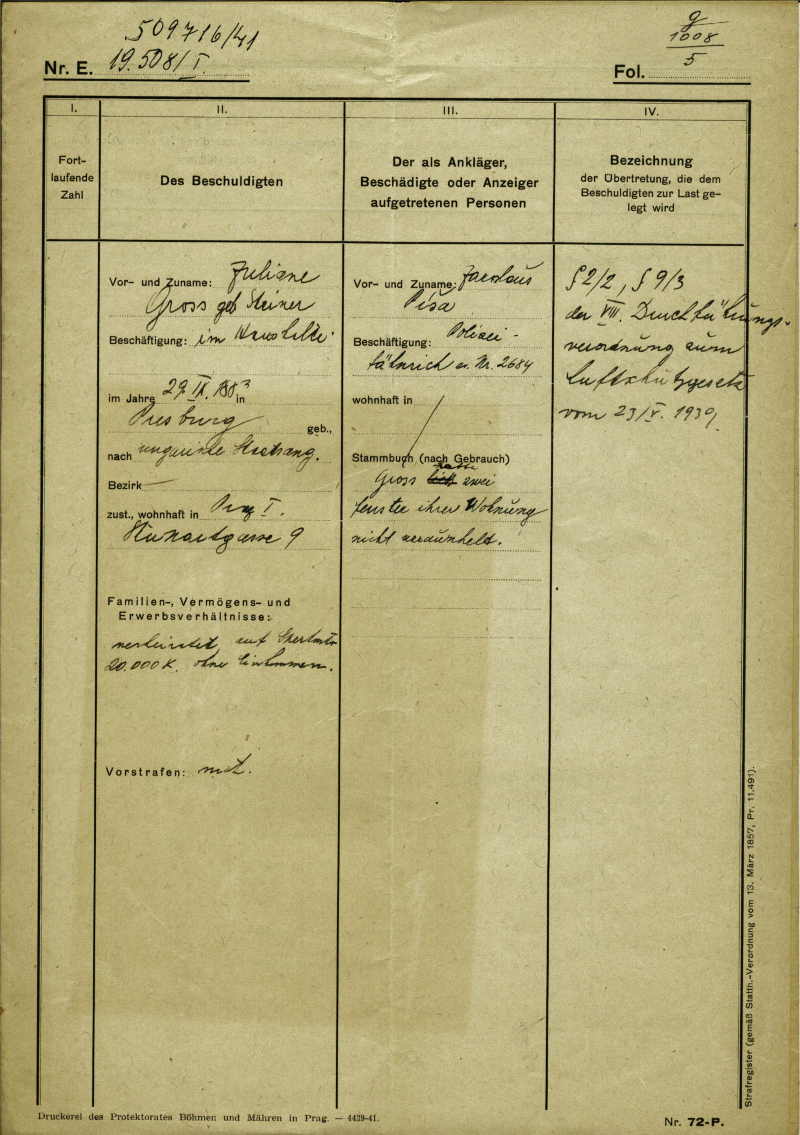 509716/41
Nr. E. 19.508/I.
g
1008
5
Fol.
I.
Fort-
laufende
Zahl
II.
Des Beschuldigten
III.
Der als Ankläger,
Beschädigte oder Anzeiger
aufgetretenen Personen
IV.
Bezeichnung
der Übertretung, die dem
Beschuldigten zur Last ge-
legt wird
Vor- und Zuname: Juliane
Gross geb Steiner
Beschäftigung: im Haushalte
im Jahre 29. IX. 1883 in
Pressburg geb.,
nach ungarische Staatsang.
Bezirk —
zust., wohnhaft in Prag I.
9
Familien-, Vermögens- und
Erwerbsverhältnisse:
verheiratet, auf
20.000 K. ohne Einkommen.
Vorstrafen:
Vor- und Zuname: Jaroslaus
Píša
Beschäftigung: Polizei-
fähnrich Nr. 2684
wohnhaft in
Stammbuch (nach Gebrauch)
Gross hatte zwei
Fenster ihrer Wohnung
nicht verdunkelt.
§ 2/2, § 9/3
der VIII. Durchführungs-
verordnung zum
Luftschutzgesetz
vom 23/V. 1939.
Strafregister (gemäß Statth.-Verordnung vom 13. März 1857, Pr. 11.491).
Druckerei des Protektorates Böhmen und Mähren in Prag. — 4429-41.
Nr. 72-P.